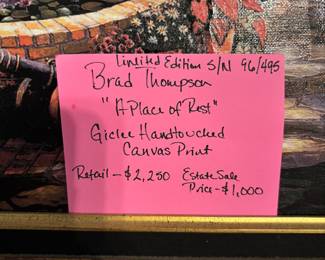 Limited Edition S/N 96/495
Brad Thompson
"A Place of Rest"
Giclee Handtouched
Canvas Print
Retail - $2,250 Estate Sale
Price - $1,000